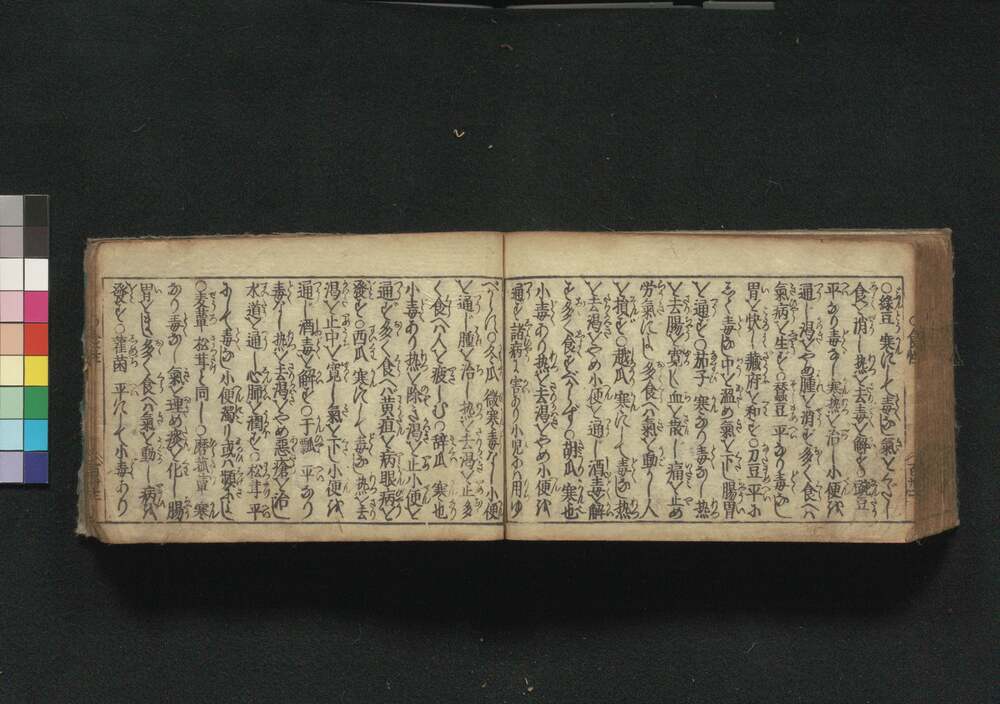 ○緑豆 寒にして毒なし氣をくだし
食を消し熱を去毒を解く○豌豆
平なり毒なし寒熱を治し小便を
通し渇をやめ腫を消す多く食へハ
氣病を生す○蚕豆 平なり毒なし
胃を快し藏府を和す○刀豆 平に
して毒なし中を温め氣を下し腸胃
を通す○茄子 寒なり毒なし熱
を去腸を寛し血を散し痛を止め
労氣によし多食ハ氣を動し人
を損す○越瓜 寒にして毒なし熱
を去渇をやめ小便を通し酒毒を解
す多く食すべからず○胡瓜 寒也
小毒あり熱を去渇をやめ小便を
通す諸病に害あり小児に用ゆ
べからず○冬瓜 微寒毒なし小便
を通し腫を治し熱を去渇を止多
く食へハ人を瘦しむ○醉瓜 寒也
小毒あり熱を除き渇を止小便を
通す多く食へハ黄疸を病眼病を
發す○西瓜 寒にして毒なし熱を去
渇を止中を寛し氣を下し小便を
通し酒毒を解す○干瓢 平なり
毒なし熱を去渇をやめ惡瘡を治し
水道を通し心肺を潤す○松茸 平
にして毒なし小便濁り或ハ頻によし
○麦蕈 松茸と同し○磨菰蕈 寒
なり毒なし氣を理め痰を化し腸
胃によし多く食へハ氣を動し病を
發す○雚菌 平にして小毒あり